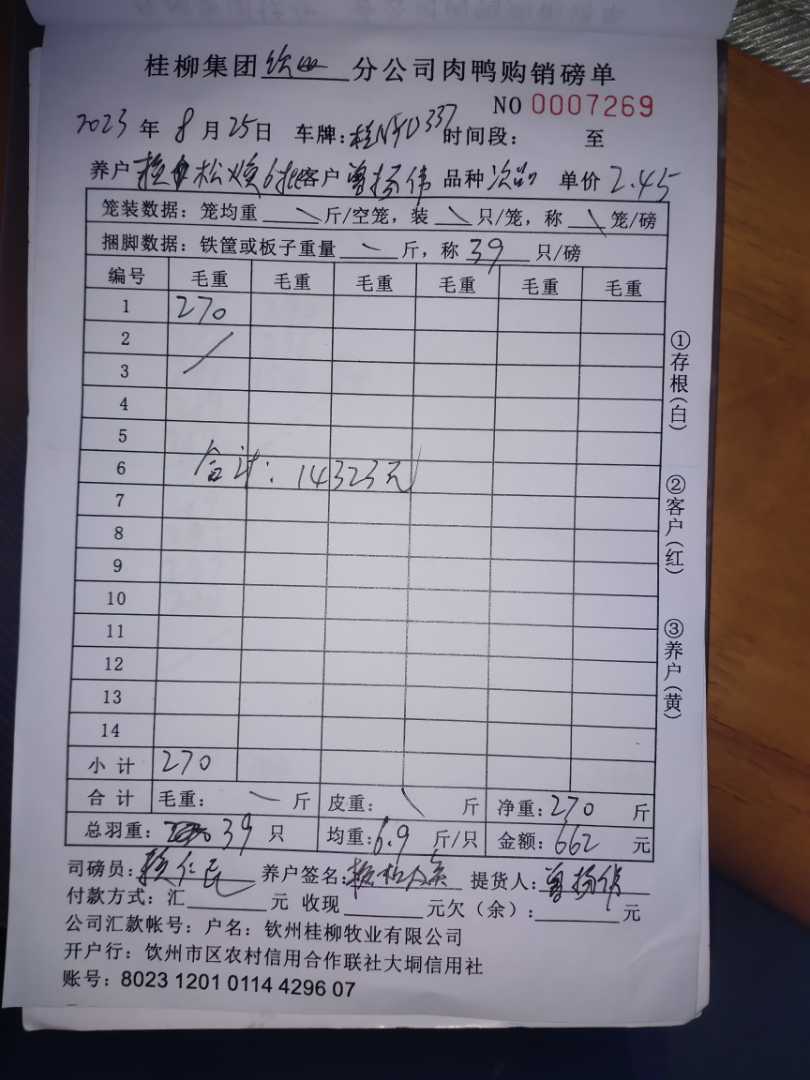 桂柳集团 分公司肉鸭购销磅单
NO 0007269
2023 年 8 月 25 日 车牌: 337 时间段: 至
养户 松焕 6批 客户 曾扬伟 品种 次品 单价 2.45
笼装数据: 笼均重 \ 斤/空笼, 装 \ 只/笼, 称 \ 笼/磅
捆脚数据: 铁筐或板子重量 - 斤, 称 39 只/磅
编号 毛重 毛重 毛重 毛重 毛重 毛重
1 270
2
3
4
5
6 合计: 14323元
7
8
9
10
11
12
13
14
小计 270
合计 毛重: - 斤 皮重: \ 斤 净重: 270 斤
总羽重: 39 只 均重: 6.9 斤/只 金额: 662 元
司磅员: 赖仁民 养户签名: 提货人: 曾扬伟
付款方式: 汇 元 收现 元欠(余): 元
公司汇款帐号: 户名: 钦州桂柳牧业有限公司
开户行: 饮州市区农村信用合作联社大垌信用社
账号: 8023 1201 0114 4296 07
①存根(白)
②客户(红)
③养户(黄)